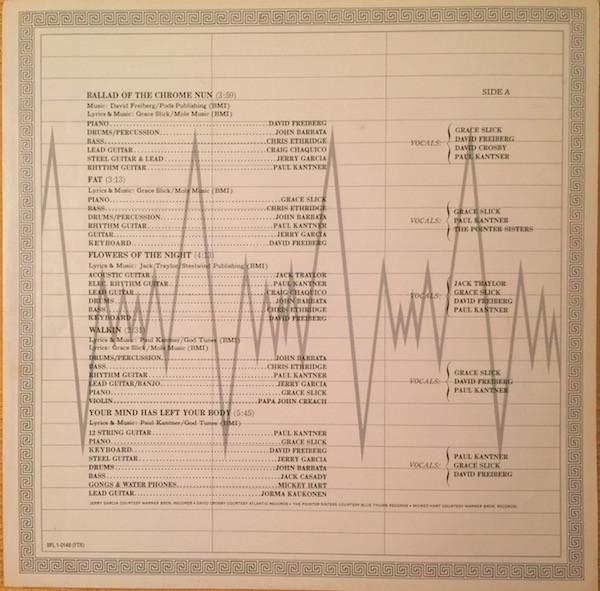 BALLAD OF THE CHROME NUN (3:59)
SIDE A
Music: David Freiberg/Pods Publishing (BMI)
Lyrics & Music: Grace Slick/Mole Music (BMI)
PIANO DAVID FREIBERG
DRUMS/PERCUSSION JOHN BARBATA
BASS CHRIS ETHRIDGE
LEAD GUITAR CRAIG CHAQUICO
STEEL GUITAR & LEAD JERRY GARCIA
RHYTHM GUITAR PAUL KANTNER
VOCALS:
GRACE SLICK
DAVID FREIBERG
DAVID CROSBY
PAUL KANTNER
FAT (3:13)
Lyrics & Music: Grace Slick/Mole Music (BMI)
PIANO GRACE SLICK
BASS CHRIS ETHRIDGE
DRUMS/PERCUSSION JOHN BARBATA
RHYTHM GUITAR PAUL KANTNER
GUITAR JERRY GARCIA
KEYBOARD DAVID FREIBERG
VOCALS:
GRACE SLICK
PAUL KANTNER
THE POINTER SISTERS
FLOWERS OF THE NIGHT
Lyrics & Music: Jack Traylor/Steelwind Publishing (BMI)
ACOUSTIC GUITAR JACK TRAYLOR
ELEC RHYTHM GUITAR PAUL KANTNER
LEAD GUITAR CRAIG CHAQUICO
DRUMS JOHN BARBATA
BASS CHRIS ETHRIDGE
KEYBOARD DAVID FREIBERG
VOCALS:
JACK TRAYLOR
GRACE SLICK
DAVID FREIBERG
PAUL KANTNER
WALKIN (2:31)
Lyrics & Music: Paul Kantner/God Tunes (BMI)
Lyrics: Grace Slick/Mole Music (BMI)
DRUMS/PERCUSSION JOHN BARBATA
BASS CHRIS ETHRIDGE
RHYTHM GUITAR PAUL KANTNER
LEAD GUITAR/BANJO JERRY GARCIA
PIANO GRACE SLICK
VIOLIN PAPA JOHN CREACH
VOCALS:
GRACE SLICK
DAVID FREIBERG
PAUL KANTNER
YOUR MIND HAS LEFT YOUR BODY (5:45)
Lyrics & Music: Paul Kantner/God Tunes (BMI)
12 STRING GUITAR PAUL KANTNER
PIANO GRACE SLICK
KEYBOARD DAVID FREIBERG
STEEL GUITAR JERRY GARCIA
DRUMS JOHN BARBATA
BASS JACK CASADY
GONGS & WATER PHONES MICKEY HART
LEAD GUITAR JORMA KAUKONEN
VOCALS:
PAUL KANTNER
GRACE SLICK
DAVID FREIBERG
JERRY GARCIA COURTESY WARNER BROS. RECORDS • DAVID CROSBY COURTESY ATLANTIC RECORDS • THE POINTER SISTERS COURTESY BLUE THUMB RECORDS • MICKEY HART COURTESY WARNER BROS. RECORDS
BFL 1-0148 (FTR)